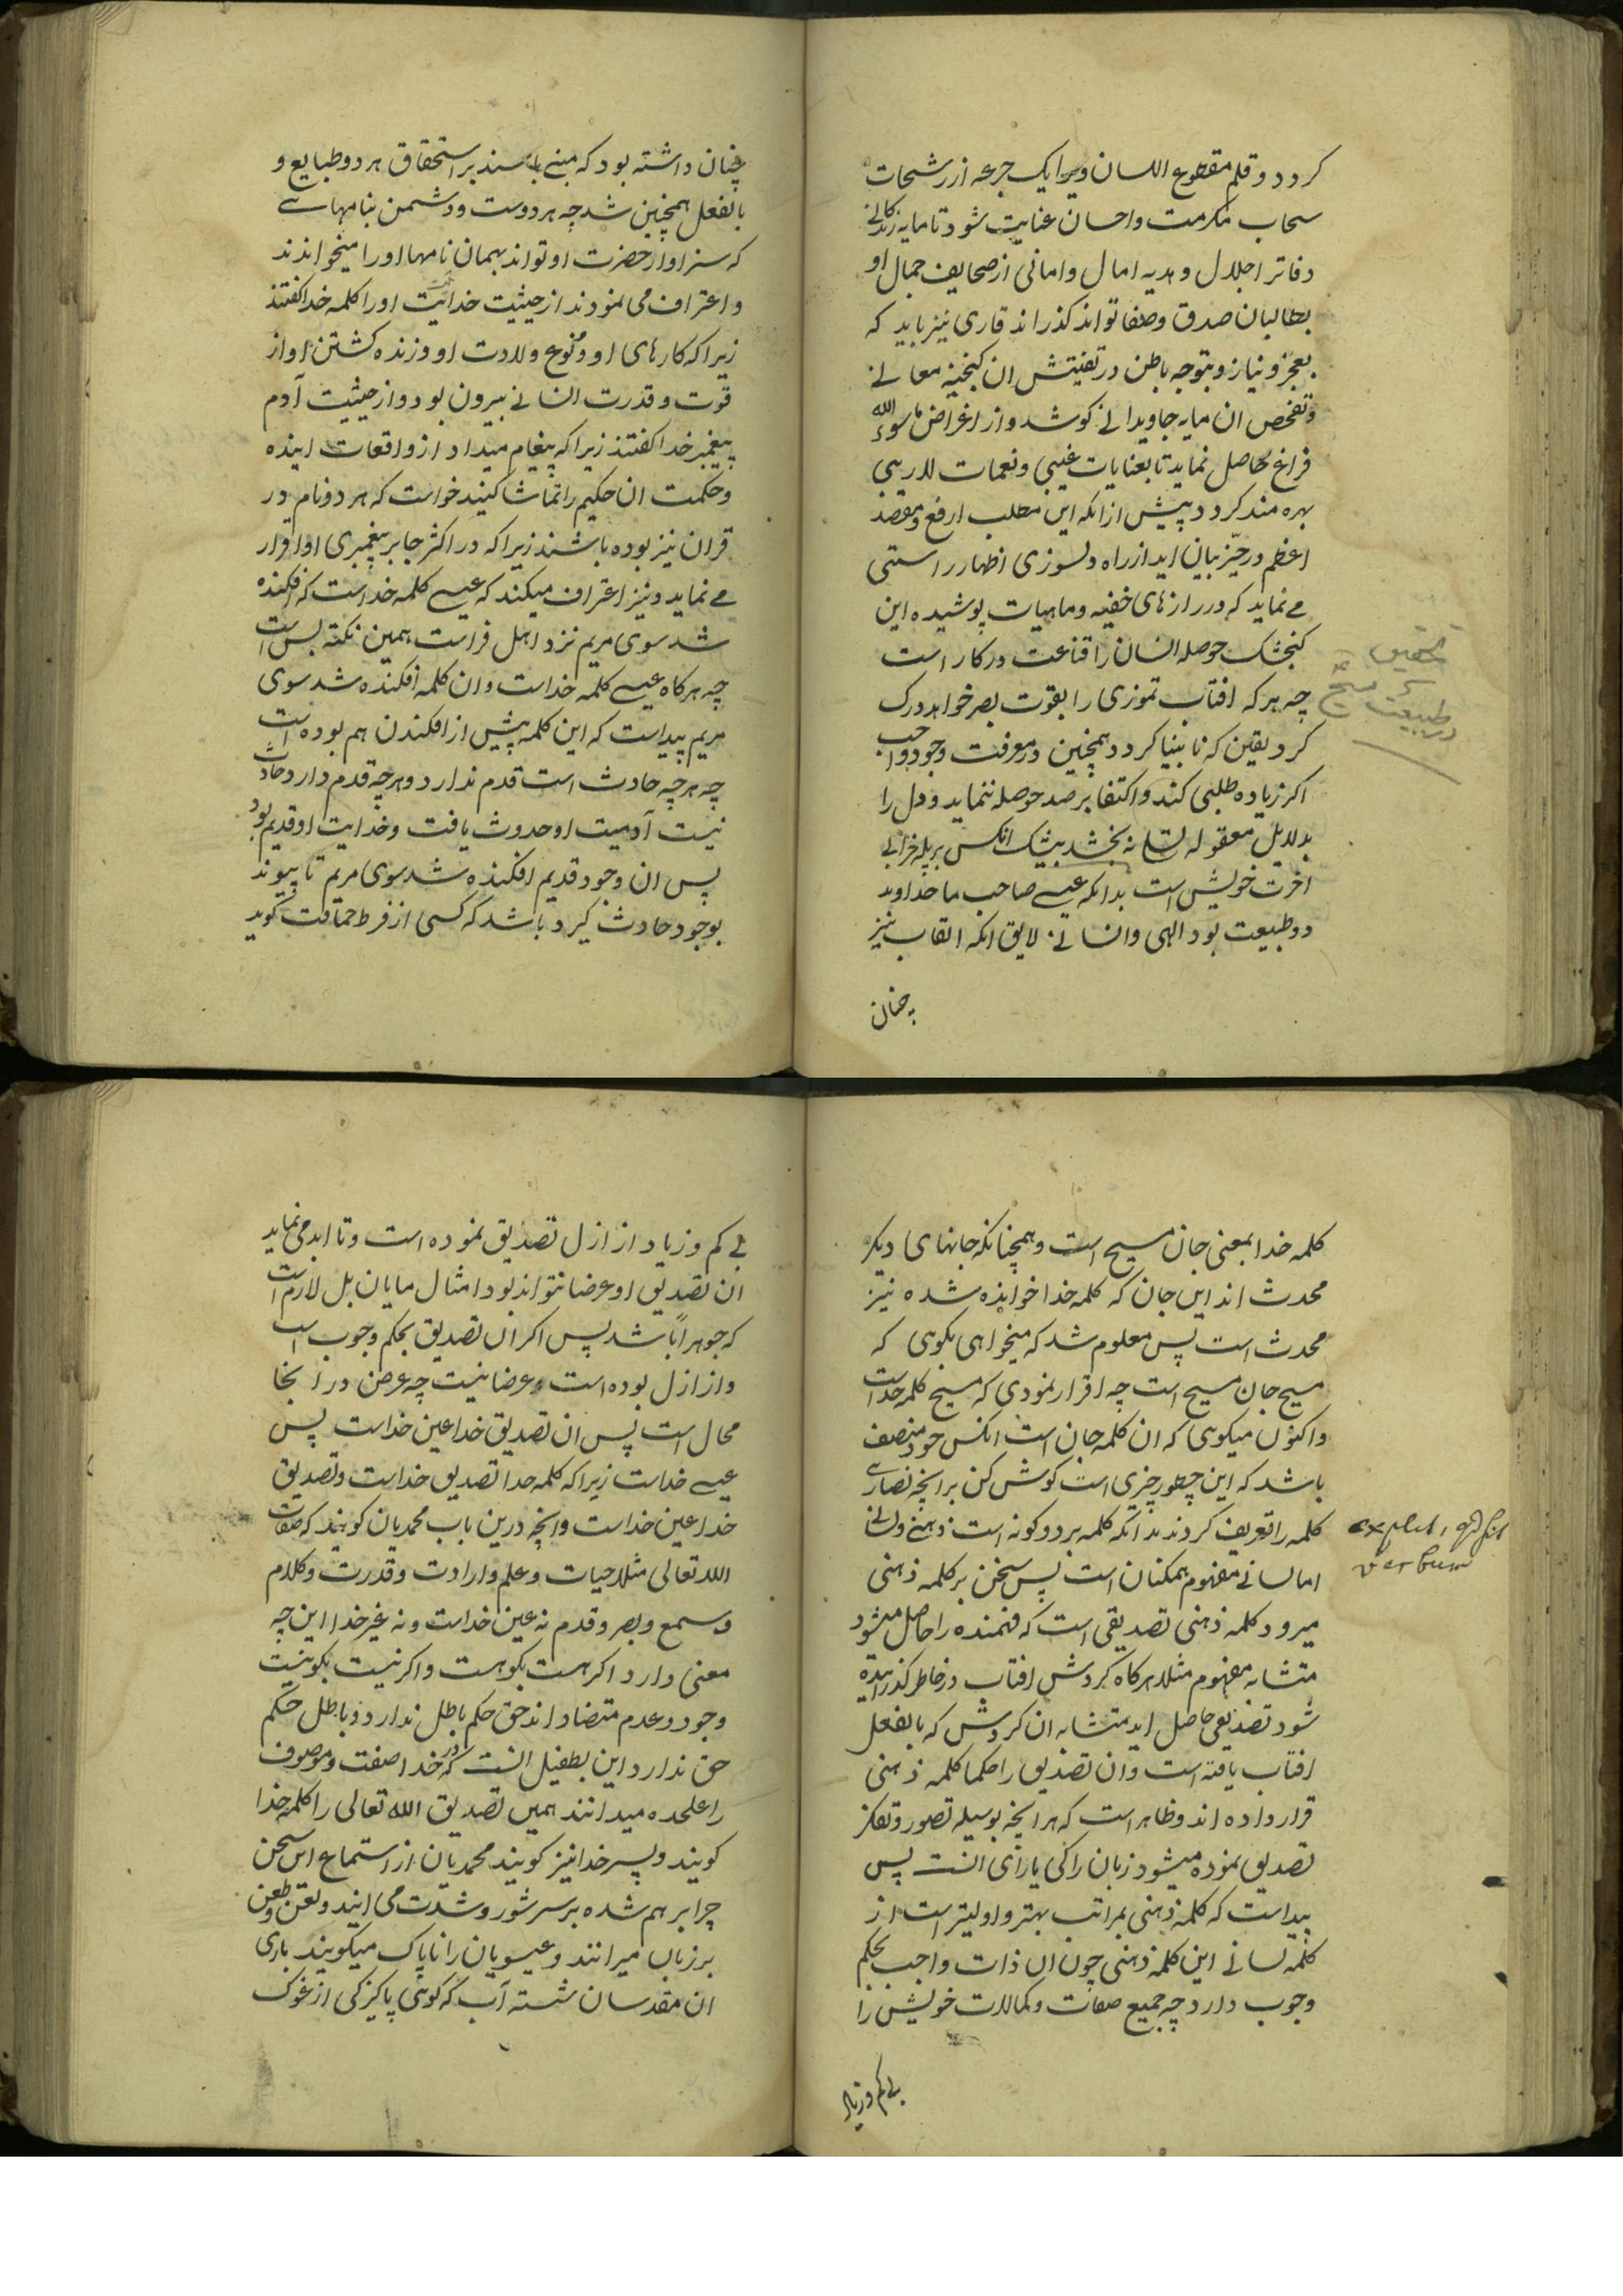 کردد و قلم مقطوع اللسان ویرا یک جرعه از رشحات
سحاب مکرمت و احسان عنایت شود تا مایه زندکانی
دفاتر اجلال و هدیه امال و امانی از صحایف جمال او
بطالبان صدق و صفا تواند کذراند قاری نیز باید که
بعجز و نیاز و بتوجه باطن در تفتیش ان کنجینه معانی
و تفحص ان مایه جاویدانی کوشد و از اغراض ماسوی الله
فراغ حاصل نماید تا بعنایات غیبی و نعمات لاریبی
بهره مند کردد پیش از انکه این مطلب ارفع و مقصد
اعظم در حیّز بیان اید از راه دلسوزی اظهار راستی
می نماید که در رازهای خفیه و ماهیات پوشیده این
کنجشک حوصله انسان را قناعت درکار است
چه هر که افتاب تموزی را بقوت بصر خواهد درک
کرد یقین که نابینا کردد همچنین در معرفت وجود واجب
اکر زیاده طلبی کند و اکتفا برصد حوصله ننماید و دل را
بدلایل معقوله تسلی نه بخشد بیشک انکس بر پله خرابی
اخرت خویش است بدانکه عیسی صاحب ما خداوند
دو طبیعت بود الهی و انسانی لایق انکه القاب نیز
چنان
تحقیق
در طبیعت مسیح
چنان داشته بود که مبنی باشند بر استحقاق هر دو طبایع و
بالفعل همچنین شد چه هر دوست و دشمن بنامهاسی
که سزاوار حضرت او تواند بهمان نامها او را میخواندند
و اعتراف می نمودند از حیثیت خدایت او را کلمه خدا کفتند
زیرا که کارهای او و وقوع ولادت او و زنده کشتن او از
قوت و قدرت انسانی بیرون بود و از حیثیت آدم
پیغمبر خدا کفتند زیرا که پیغام میداد از واقعات اینده
و حکمت ان حکیم را تماشا کنید خواست که هر دو نام در
قران نیز بوده باشند زیرا که در اکثر جا بر پیغمبری او اقرار
می نماید و نیز اعتراف میکند که عیسی کلمه خداست که افکنده
شد سوی مریم نزد اهل فراست همین نکته بس است
چه هرکاه عیسی کلمه خداست و ان کلمه افکنده شد سوی
مریم پیداست که این کلمه پیش از افکندن هم بوده است
چه هر چه حادث است قدم ندارد و هر چه قدم دارد حادث
نیست آدمیت او حدوث یافت و خدایت او قدیم بود
پس ان وجود قدیم افکنده شد سوی مریم تا پیوند
بوجود حادث کیرد باشد که کسی از فرط حماقت کوید
کلمه خدا بمعنی جان مسیح است و همچنانکه جانهای دیکر
محدث اند این جان که کلمه خدا خوانده شده نیز
محدث است پس معلوم شد که میخواهی بکوی که
مسیح جان مسیح است چه اقرار نمودی که مسیح کلمه خداست
و اکنون میکوی که ان کلمه جان است انکس خود منصف
باشد که این چطور چیزی است کوش کن بر انچه نصاری
کلمه را تعریف کردند بدانکه کلمه بر دو کونه است ذهنی ولسانی
اما لسانی مفهوم همکنان است پس سخن بر کلمه ذهنی
میرود کلمه ذهنی تصدیقی است که فهمنده را حاصل میشود
متشابه مفهوم مثلا هرکاه کردش افتاب در خاطر کذرانیده
شود تصدیقی حاصل اید متشابه ان کردش که بالفعل
افتاب یافته است و ان تصدیق را حکما کلمه ذهنی
قرار داده اند و ظاهر است که هر انچه بوسیله تصور و تفکر
تصدیق نموده میشود زبان را کی یارای انست پس
پیداست که کلمه ذهنی بمراتب بهتر و اولیتر است از
کلمه لسانی این کلمه ذهنی چون ان ذات واجب بحکم
وجوب دارد چه جمیع صفات و کمالات خویش را
بی کم و زیاد
explict, qd sit
verbum
بی کم و زیاد از ازل تصدیق نموده است و تا ابد می نماید
ان تصدیق او عرضا نتواند بود امثال مایان بل لازم است
که جوهراً باشد پس اکر ان تصدیق بحکم وجوب است
و از ازل بوده است و عرضا نیست چه عرض در انجا
محال است پس ان تصدیق خدا عین خداست پس
عیسی خداست زیرا که کلمه خدا تصدیق خداست و تصدیق
خدا عین خداست و انچه درین باب محمدیان کویند که صفات
الله تعالی مثلا حیات و علم و ارادت و قدرت و کلام
و سمع و بصر و قدم نه عین خداست و نه غیر خدا این چه
معنی دارد اکر هست بکو هست و اکر نیست بکو نیست
وجود و عدم متضاد اند حق حکم باطل ندارد و باطل حکم
حق ندارد این بطفیل انست که در خدا صفت و موصوف
را علحده میدانند همین تصدیق الله تعالی را کلمه خدا
کویند و پسر خدا نیز کویند محمدیان از استماع این سخن
چرا برهم شده بر سر شور و شدت می ایند و لعن و طعن
بر زبان میرانند و عیسویان را ناپاک میکویند باری
ان مقدسان شسته آب که کوئی پاکیزکی از غوک